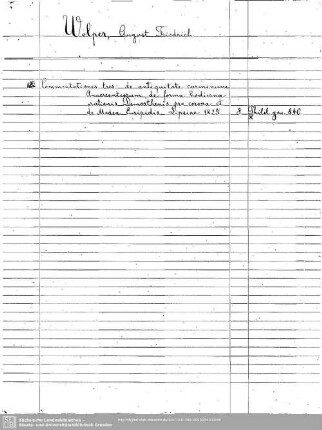 Wolper, August Friedrich
Commentationes tres: de antiquitate carminum
Anacreonticorum, de forma hodierna
orationis Demosthenis pro corona et
de Medea Euripidis. Lipsiae 1825 8. Philol. gr. 440
Sächsische Landesbibliothek -
Staats- und Universitätsbibliothek Dresden